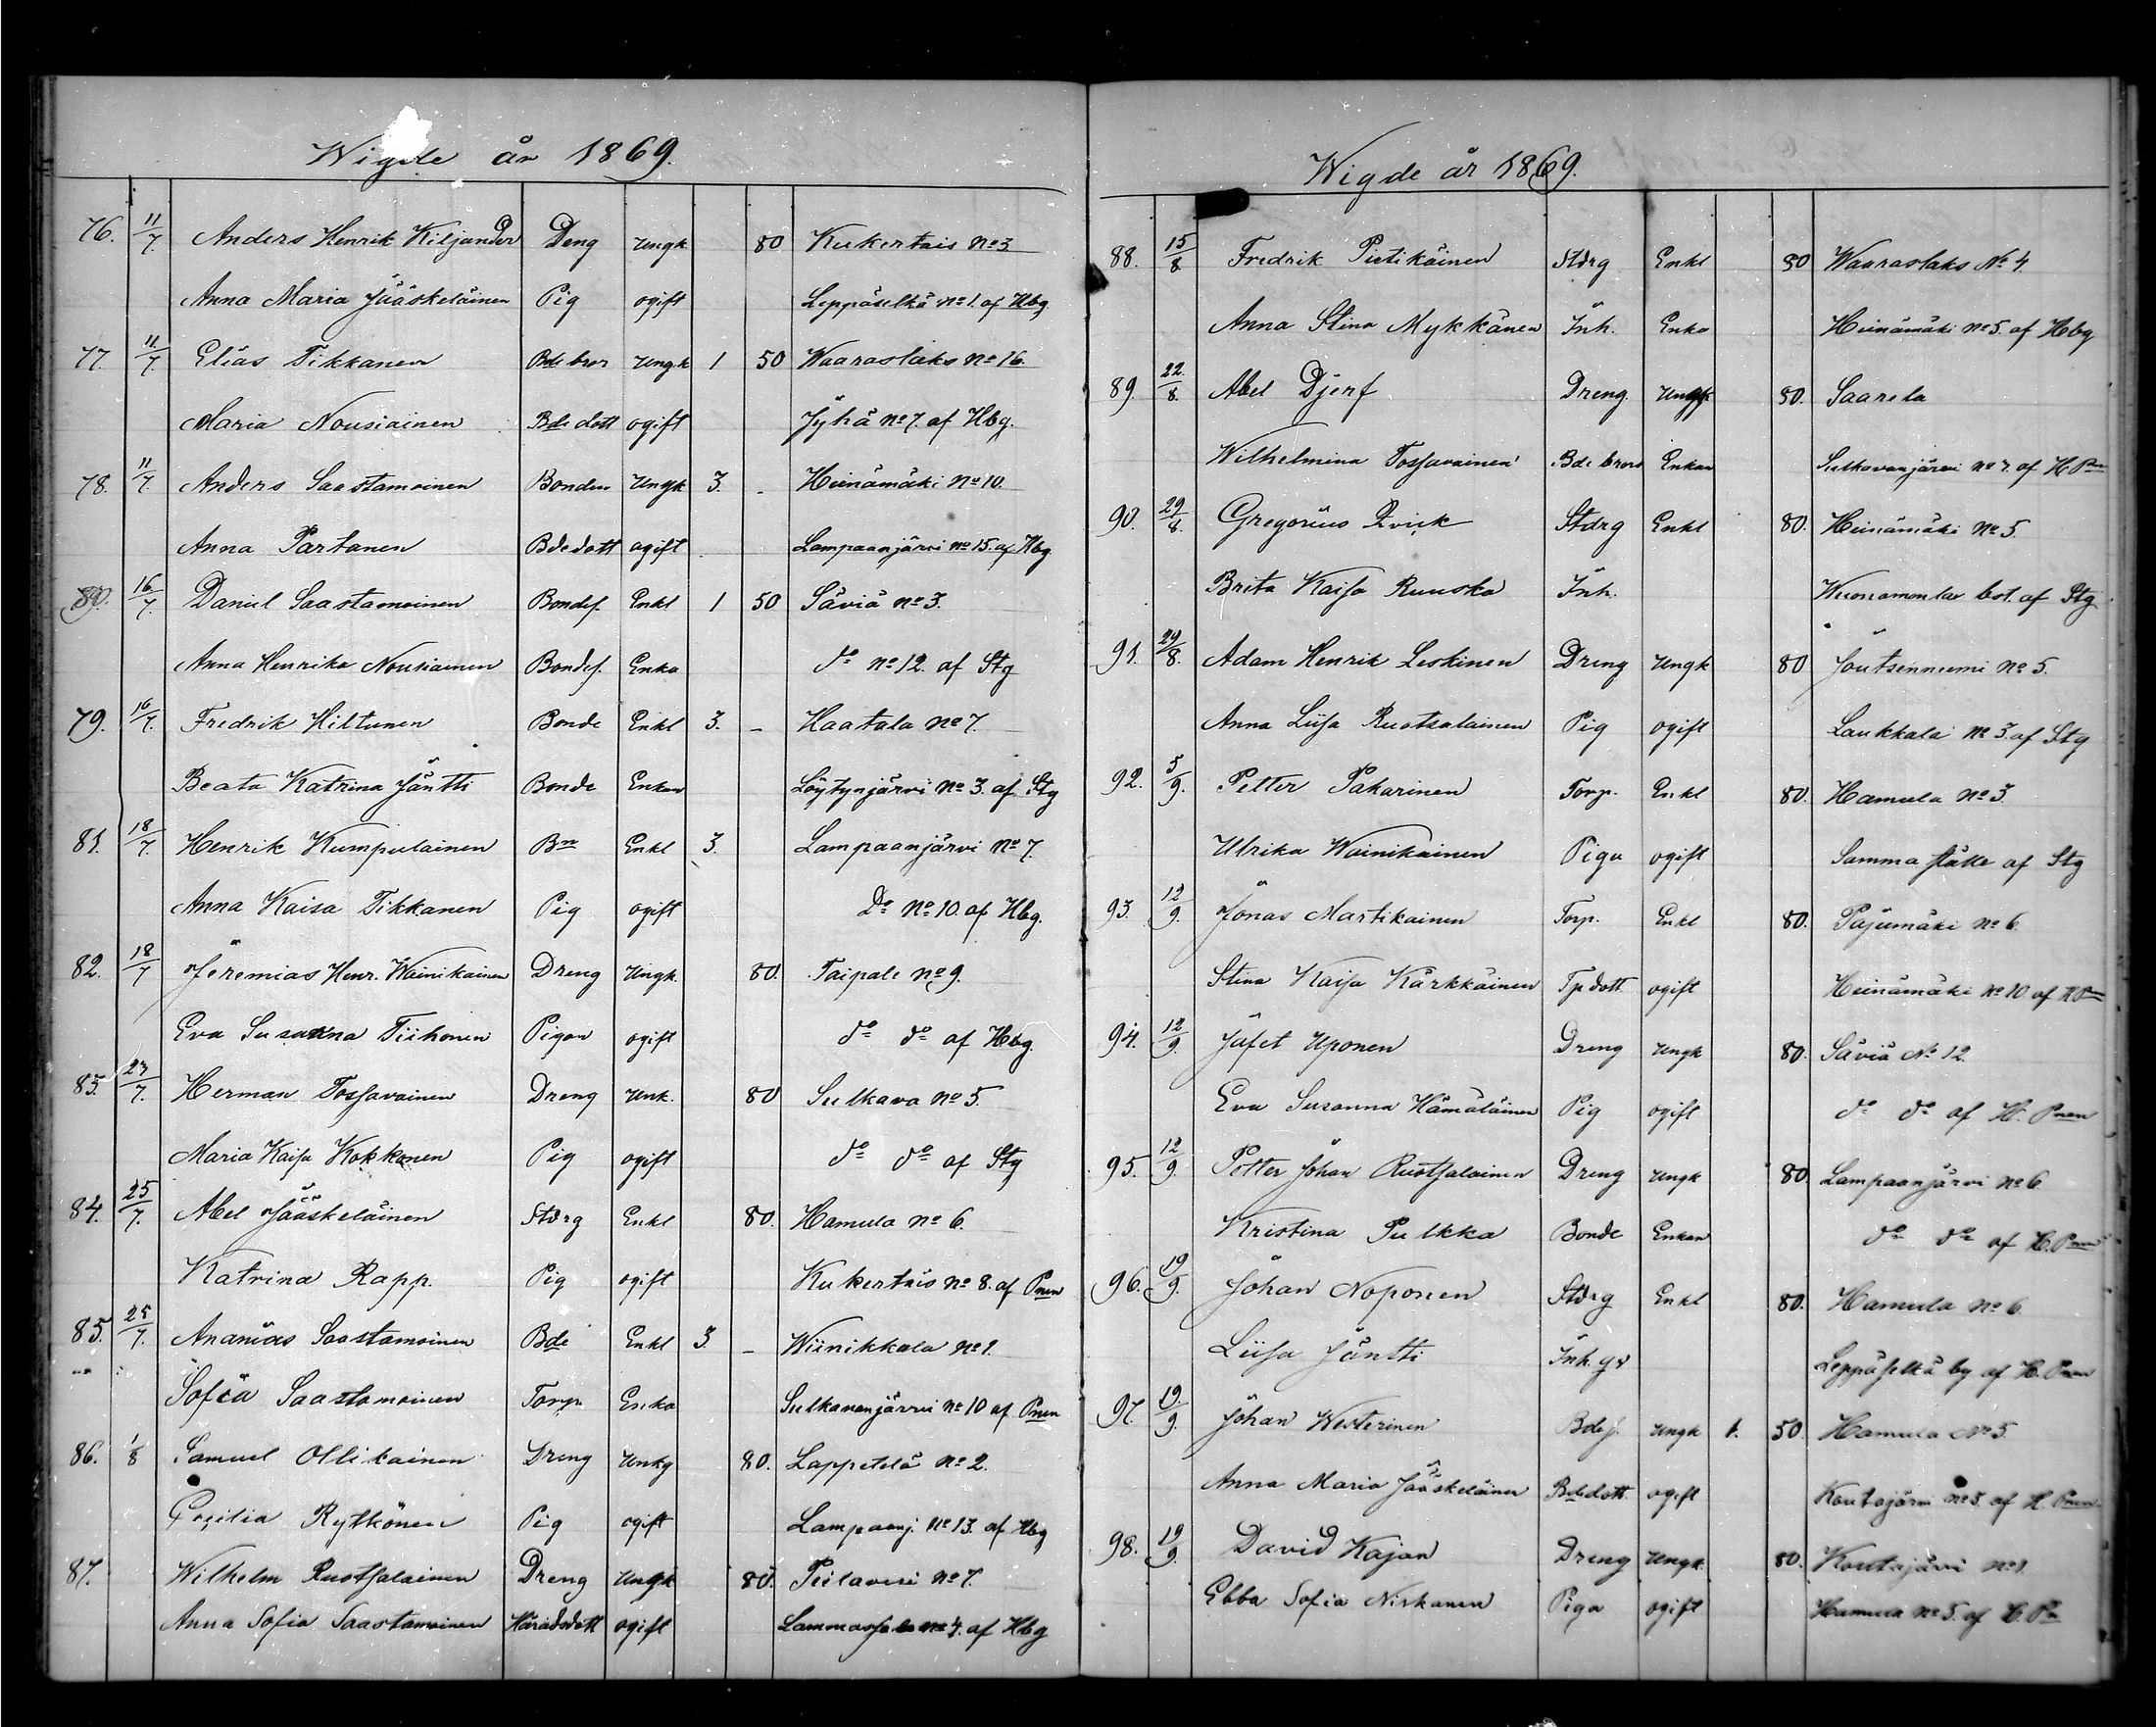 Wigde år 1869.
76. 11/7. Anders Henrik Kiljander Deng Ungk 80 Kukertais No 3
Anna Maria Jääskeläinen Pig ogift Leppäselkä No 1. af Hbg
77. 11/7. Elias Tikkanen Bde bror Ungk 1 50 Waaraslaks No 16.
Maria Nousiainen Bde dott ogift Jyhä No 7. af Hbg.
78. 11/7. Anders Saastamoinen Bonden Ungk 3. - Heinämäki No 10.
Anna Partanen Bdedott ogift Lampaanjärvi No 15. af Hbg
80. 16/7. Daniel Saastamoinen Bondes. Enkl 1 50 Säviä No 3.
Anna Henrika Nousiainen Bondes. Enka do No 12. af Stg
79. 16/7. Fredrik Hiltunen Bonde Enkl 3. - Haatala No 7.
Beata Katrina Jäntti Bonde Enkan Löytynjärvi No 3. af Stg
81. 18/7. Henrik Kumpulainen Bn Enkl 3. Lampaanjärvi No 7.
Anna Kaisa Tikkanen Pig ogift Do No 10. af Hbg.
82. 18/7 Jeremias Henr. Wainikainen Dreng Ungk. 80. Taipale No 9.
Eva Susanna Tiihonen Pigan ogift do do af Hbg.
83. 23/7. Herman Tossavainen Dreng Unk. 80 Sulkava No 5.
Maria Kaisa Kokkonen Pig ogift do do af Stg
84. 25/7. Abel Jääskeläinen Stdrg Enkl 80. Hamula No 6.
Katrina Rapp. Pig ogift Kukertais No 8. af Pnen
85. 25/7. Ananias Saastamoinen Bde Enkl 3. - Wiinikkala No 1.
Sofia Saastamoinen Torp. Enka Sulkavanjärvi No 10 af Pnen
86. 1/8 Samuel Ollikainen Dreng Unkg 80. Lappetelä No 2.
Cecilia Rytkönen Pig ogift Lampaanj. No 13. af Hbg
87. Wilhelm Ruotsalainen Dreng Ungk 80. Pielavesi No 7.
Anna Sofia Saastamoinen Häradsdott ogift No 4. af Hbg
Wigde år 1869.
88. 15/8. Fredrik Pietikäinen Stdrg Enkl 80 Waaraslaks No 4.
Anna Stina Mykkänen Inh. Enka Heinämäki No 5. af Hbg
89. 22/8. Abel Djerf Dreng. Ungk 80. Saarela
Wilhelmina Tossavainen Bde brors Enkan Sulkavanjärvi No 7. af H Pnn
90. 29/8. Gregorius Qvick Stdrg Enkl 80. Heinämäki No 5.
Brita Kaisa Ruuska Inh. bol. af Stg
91. 29/8. Adam Henrik Leskinen Dreng Ungk 80 Joutsenniemi No 5.
Anna Liisa Ruotsalainen Pig ogift Laukkala No 3. af Stg
92. 5/9. Petter Pakarinen Torp. Enkl 80. Hamula No 3.
Ulrika Wainikainen Piga ogift Samma ställe af Stg
93. 12/9. Jonas Martikainen Torp. Enkl 80. Pajumäki No 6.
Stina Kaisa Kärkkäinen Tp dott. ogift Heinämäki No 10 af H Pnn
94. 12/9. Jafet Uponen Dreng Ungk 80. Säviä No 12.
Eva Susanna Hämäläinen Pig ogift do do af H. Pnen
95. 12/9. Petter Johan Ruotsalainen Dreng Ungk 80. Lampaanjärvi No 6.
Kristina Pulkka Bonde Enkan do do af H. Pnen
96. 19/9. Johan Noponen Stdrg Enkl 80. Hamula No 6.
Liisa Jäntti Inh. Leppäselkä by af H. Pnen
97. 19/9. Johan Westerinen Bdes. Ungk 1. 50. Hamula No 5.
Anna Maria Jääskeläinen Bdedott. ogift Koutajärvi No 5. af H Pnen
98. 19/9. David Kajan Dreng Ungk. 80. Koutajärvi No 1.
Ebba Sofia Niskanen Piga ogift Hamula No 5. af H. Pn